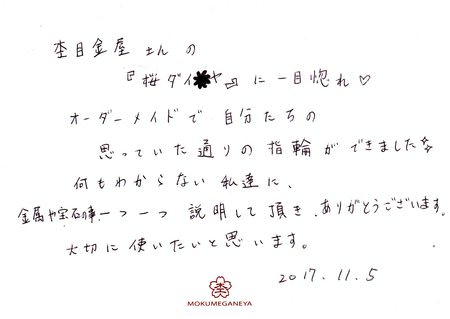 杢目金屋さんの
『桜ダイヤ』に一目惚れ♡
オーダーメイドで自分たちの
思っていた通りの指輪ができました☆
何もわからない私達に、
金属や宝石の事一つ一つ説明して頂き、ありがとうございます。
大切に使いたいと思います。
2017.11.5
杢
MOKUMEGANEYA